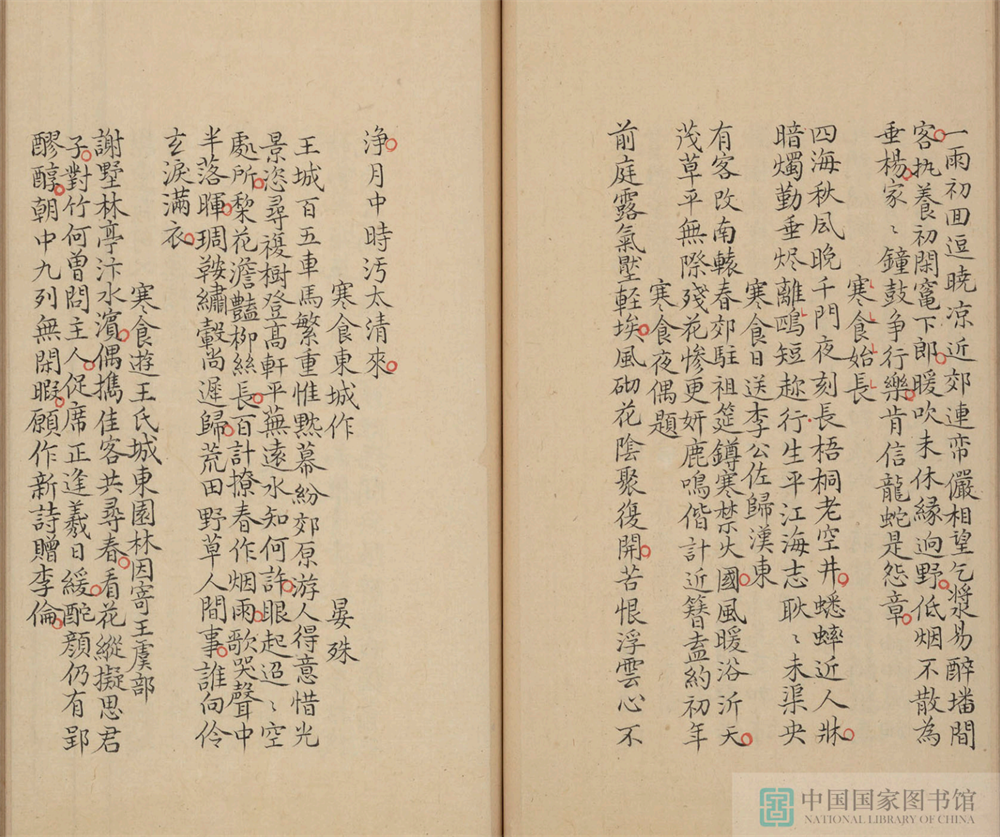 一雨初回逗曉凉近郊連帟儼相望乞漿易醉墦間
客执養初閑竈下郎暖吹未休緣逈野低烟不散為
垂楊家〻鐘鼓争行樂肯信龍蛇是怨章
寒食始長
四海秋風晚千門夜刻長梧桐老空井蟋蟀近人牀
暗燭勤垂烬離鴎短趂行生平江海志耿〻未渠央
寒食日送李公佐歸漢東
有客改南轅春郊駐祖筵鐏寒禁火國風暖浴沂天
茂草平無際殘花惨更妍鹿鳴偕計近簪盍約初年
寒食夜偶題
前庭露氣壓輕埃風砌花陰聚復開苦恨浮雲心不
净月中時汚太清來
寒食東城作
晏殊
王城百五車馬繁重惟黙幕紛郊原游人得意惜光
景恣尋複樹登高軒平蕪遠水知何許眼起迢〻空
處所梨花澹豔柳絲長百計撩春作烟雨歌哭聲中
半落暉琱鞍繡轂尚遲歸荒田野草人間事誰向伶
玄淚滿衣
寒食遊王氏城東園林因寄王虞部
謝墅林亭汴水濱偶擕佳客共尋春看花縱擬思君
子對竹何曽問主人促席正逢羲日緩酡顔仍有郢
醪醇朝中九列無閑暇願作新詩贈李倫
中国国家图书馆
NATIONAL LIBRARY OF CHINA